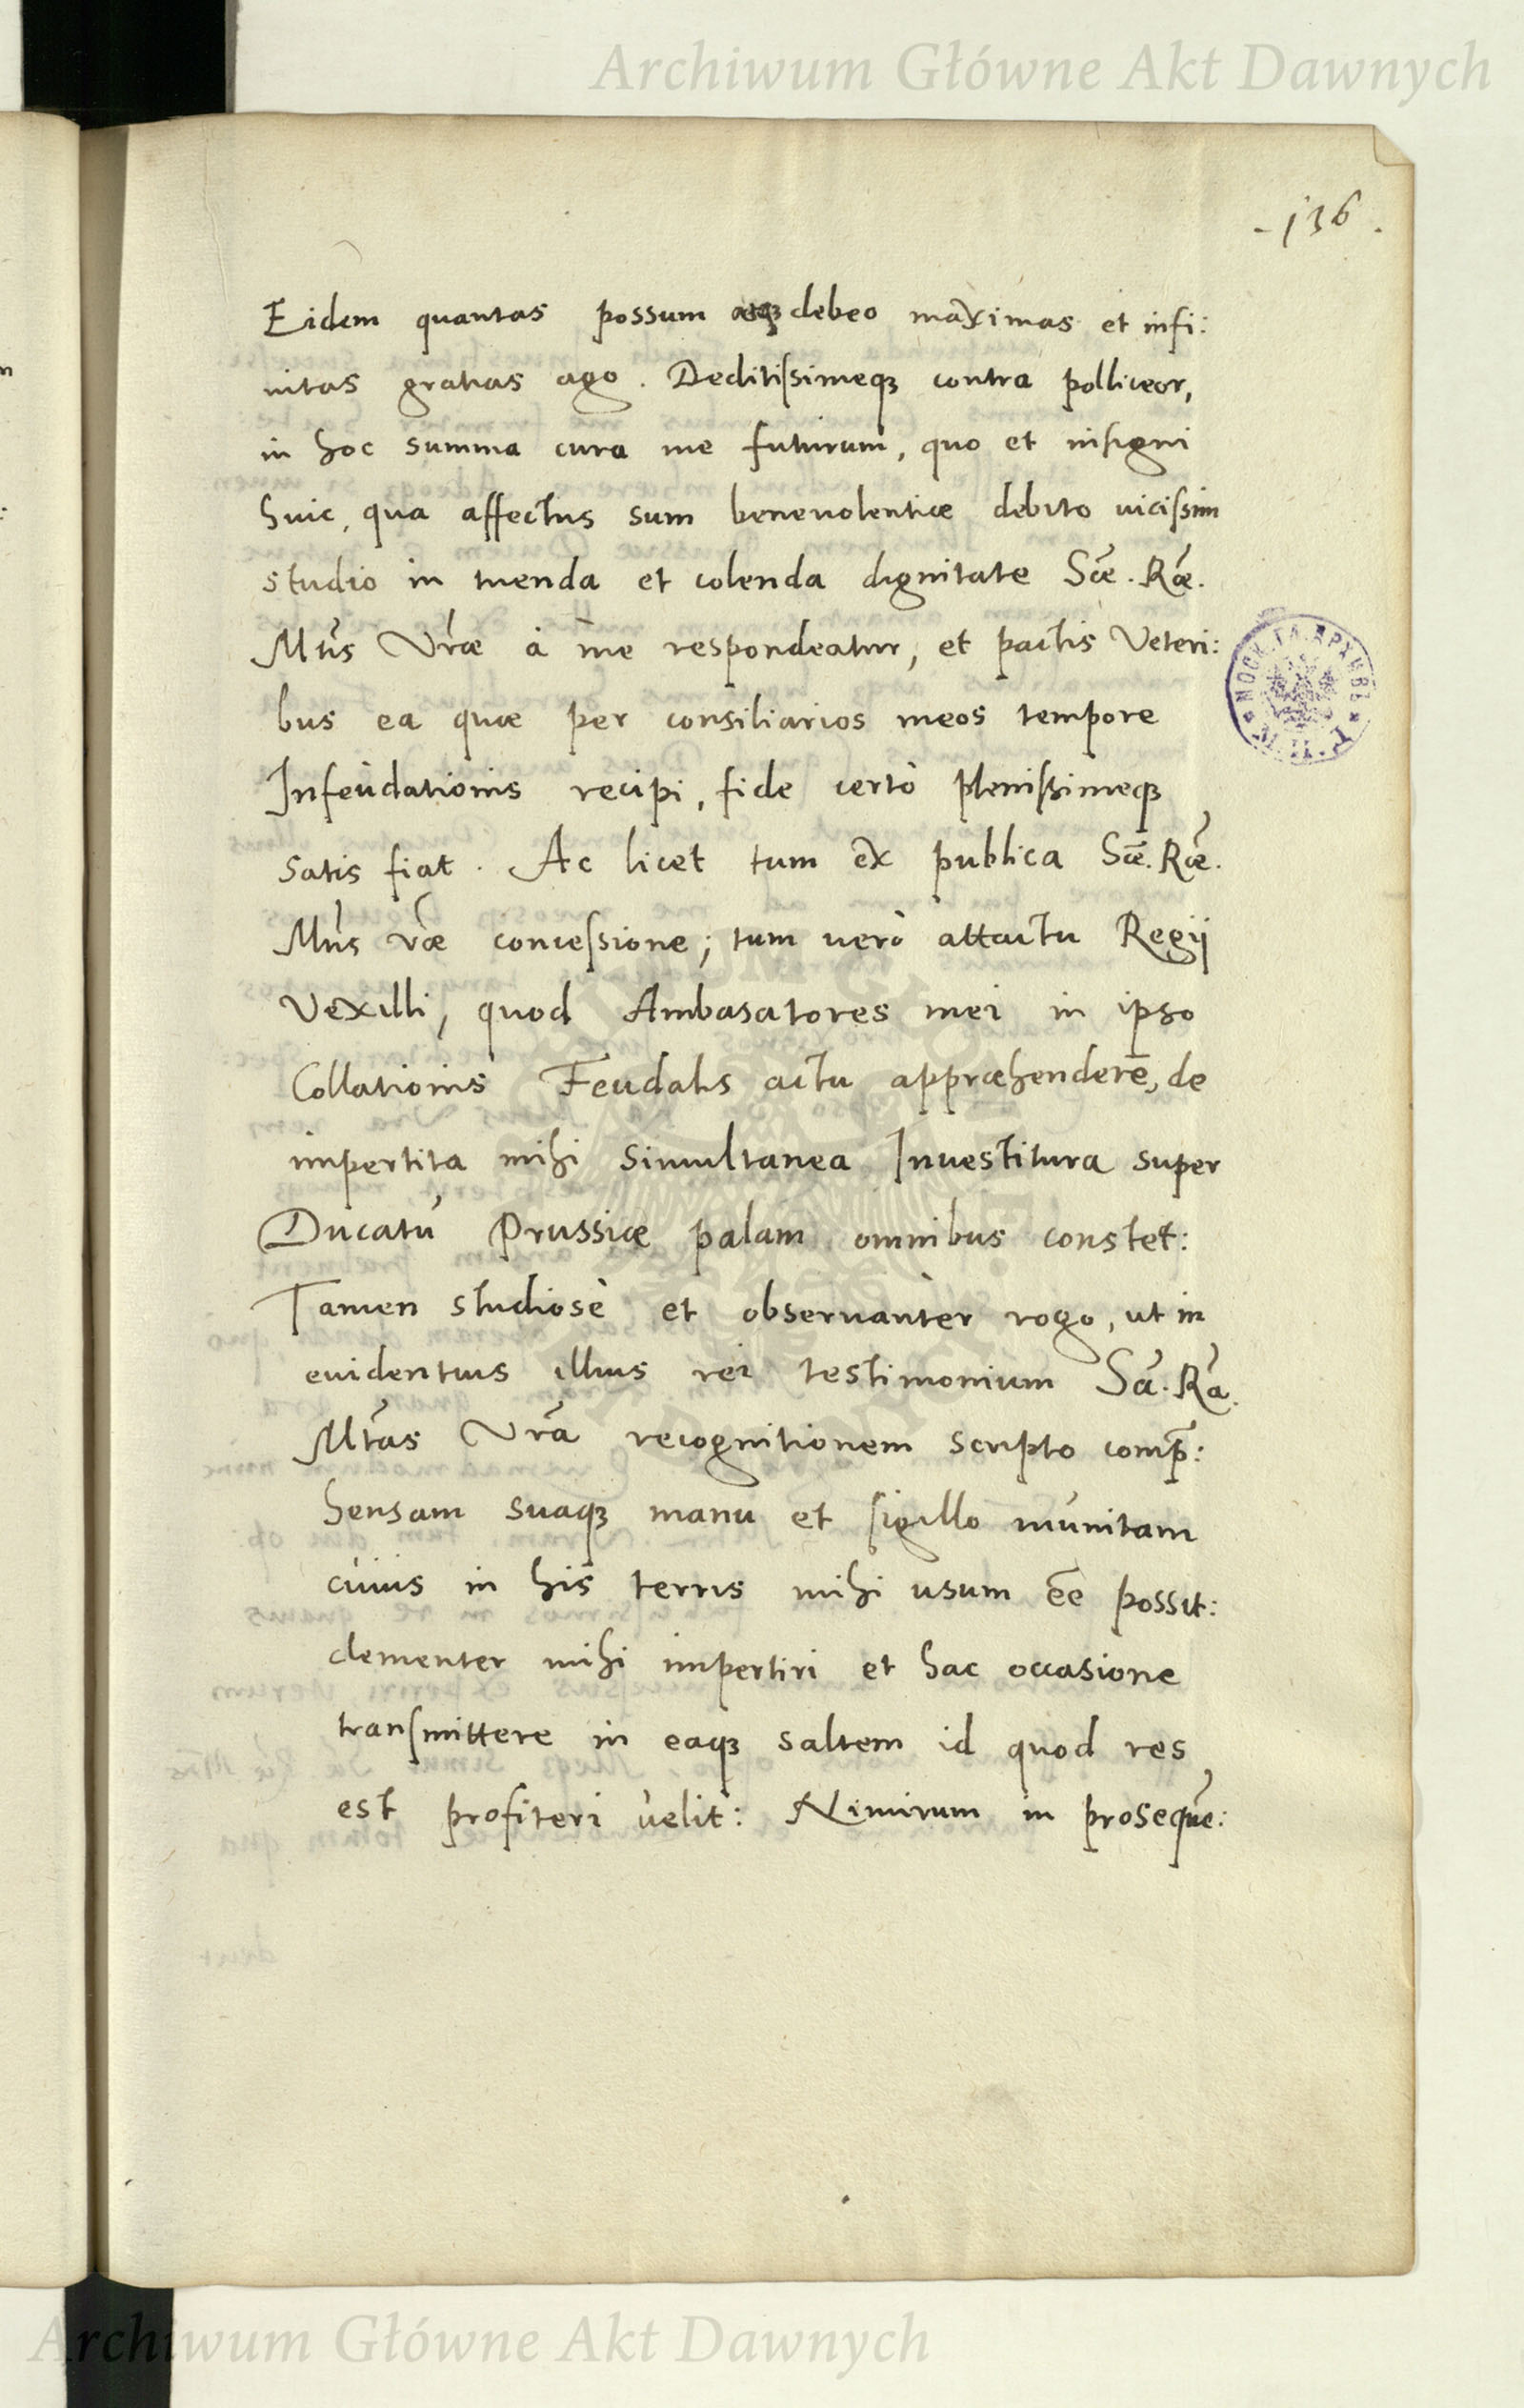 Archiwum Główne Akt Dawnych
- 136 .
Eidem quantas possum atqꝫ debeo maximas et infi:
nitas gratias ago . Deditissimeqꝫ contra polliceor,
in hoc summa cura me futurum, quo et insigni
huic, qua affectus sum beneuolentiæ debito uicissim
studio in tuenda et colenda dignitate Sæ̃. Ræ̃.
Mtis Vræ à me respondeatur, et pactis Veteri:
bus ea quæ per consiliarios meos tempore
Infeudationis recipi, fide certò plenissimeqꝫ
satis fiat . Ac licet tum ex publica Sæ̃. Ræ̃.
Mtis vræ concessione; tum uerò attactu Regij
Vexilli, quod Ambasatores mei in ipso
Collationis Feudalis actu appræhenderẽ, de
impertita mihi simultanea Inuestitura super
Ducatu Prussiæ palam omnibus constet:
Tamen studiosè et obseruantèr rogo, ut in
euidentius illius rei testimonium Sã. Rã.
Mtãs Vrã recognitionem scripto comp̃:
hensam suaqꝫ manu et sigillo munitam
cuius in his terris mihi usum eẽ possit:
clementer mihi impertiri et hac occasione
transmittere in eaqꝫ saltem id quod res
est profiteri uelit: Nimirum in prosequẽ:
Archiwum Główne Akt Dawnych